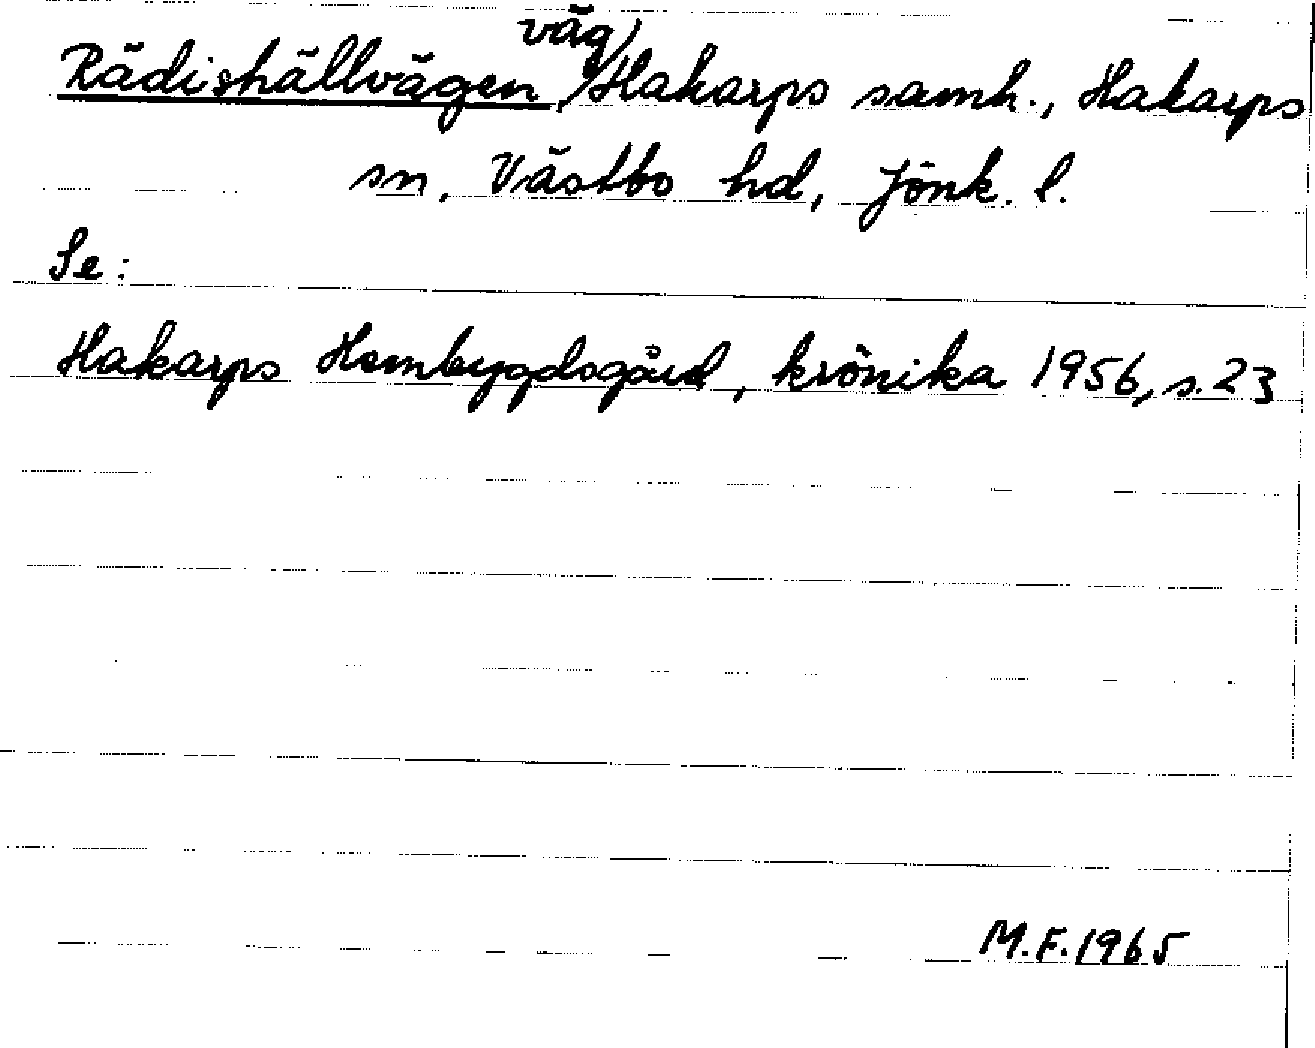 Rädishällvägen, väg, Hakarps samh., Hakarps
sn, Västbo hd, Jönk. l.
Se:
Hakarps Hembygdsgård, krönika 1956, s. 23
M.F. 1965